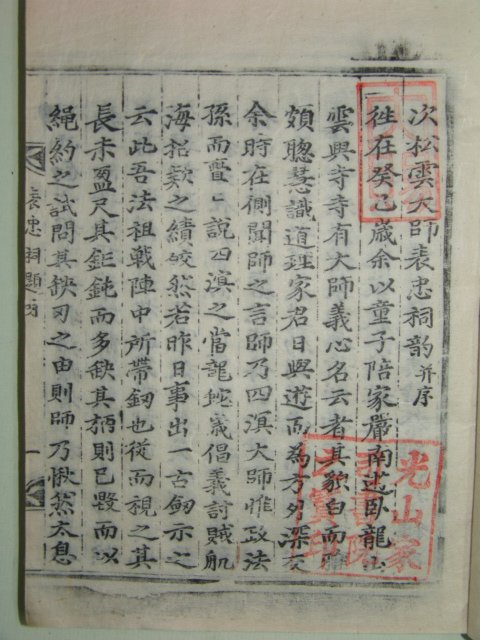 次松雲大師表忠祠韵并序
徃在癸巳歲余以童子陪家嚴南遊臥龍山
雲興寺寺有大師義心名云者其貌白而
頗聰慧識道理家君日與遊而為方外深交
余時在側聞師之言師乃四溟大師惟政法
孫而亹〻說四溟之當龍蛇歲倡義討賊航
海招欵之績皎然若昨日事出一古劒示之
云此吾法祖戰陣中所帶釼也從而視之其
長未盈尺其鉅鈍而多缺其柄則已毀而以
繩約之試問其缺刃之由則師乃愀然太息
表忠祠題
一
光山家
書院
印